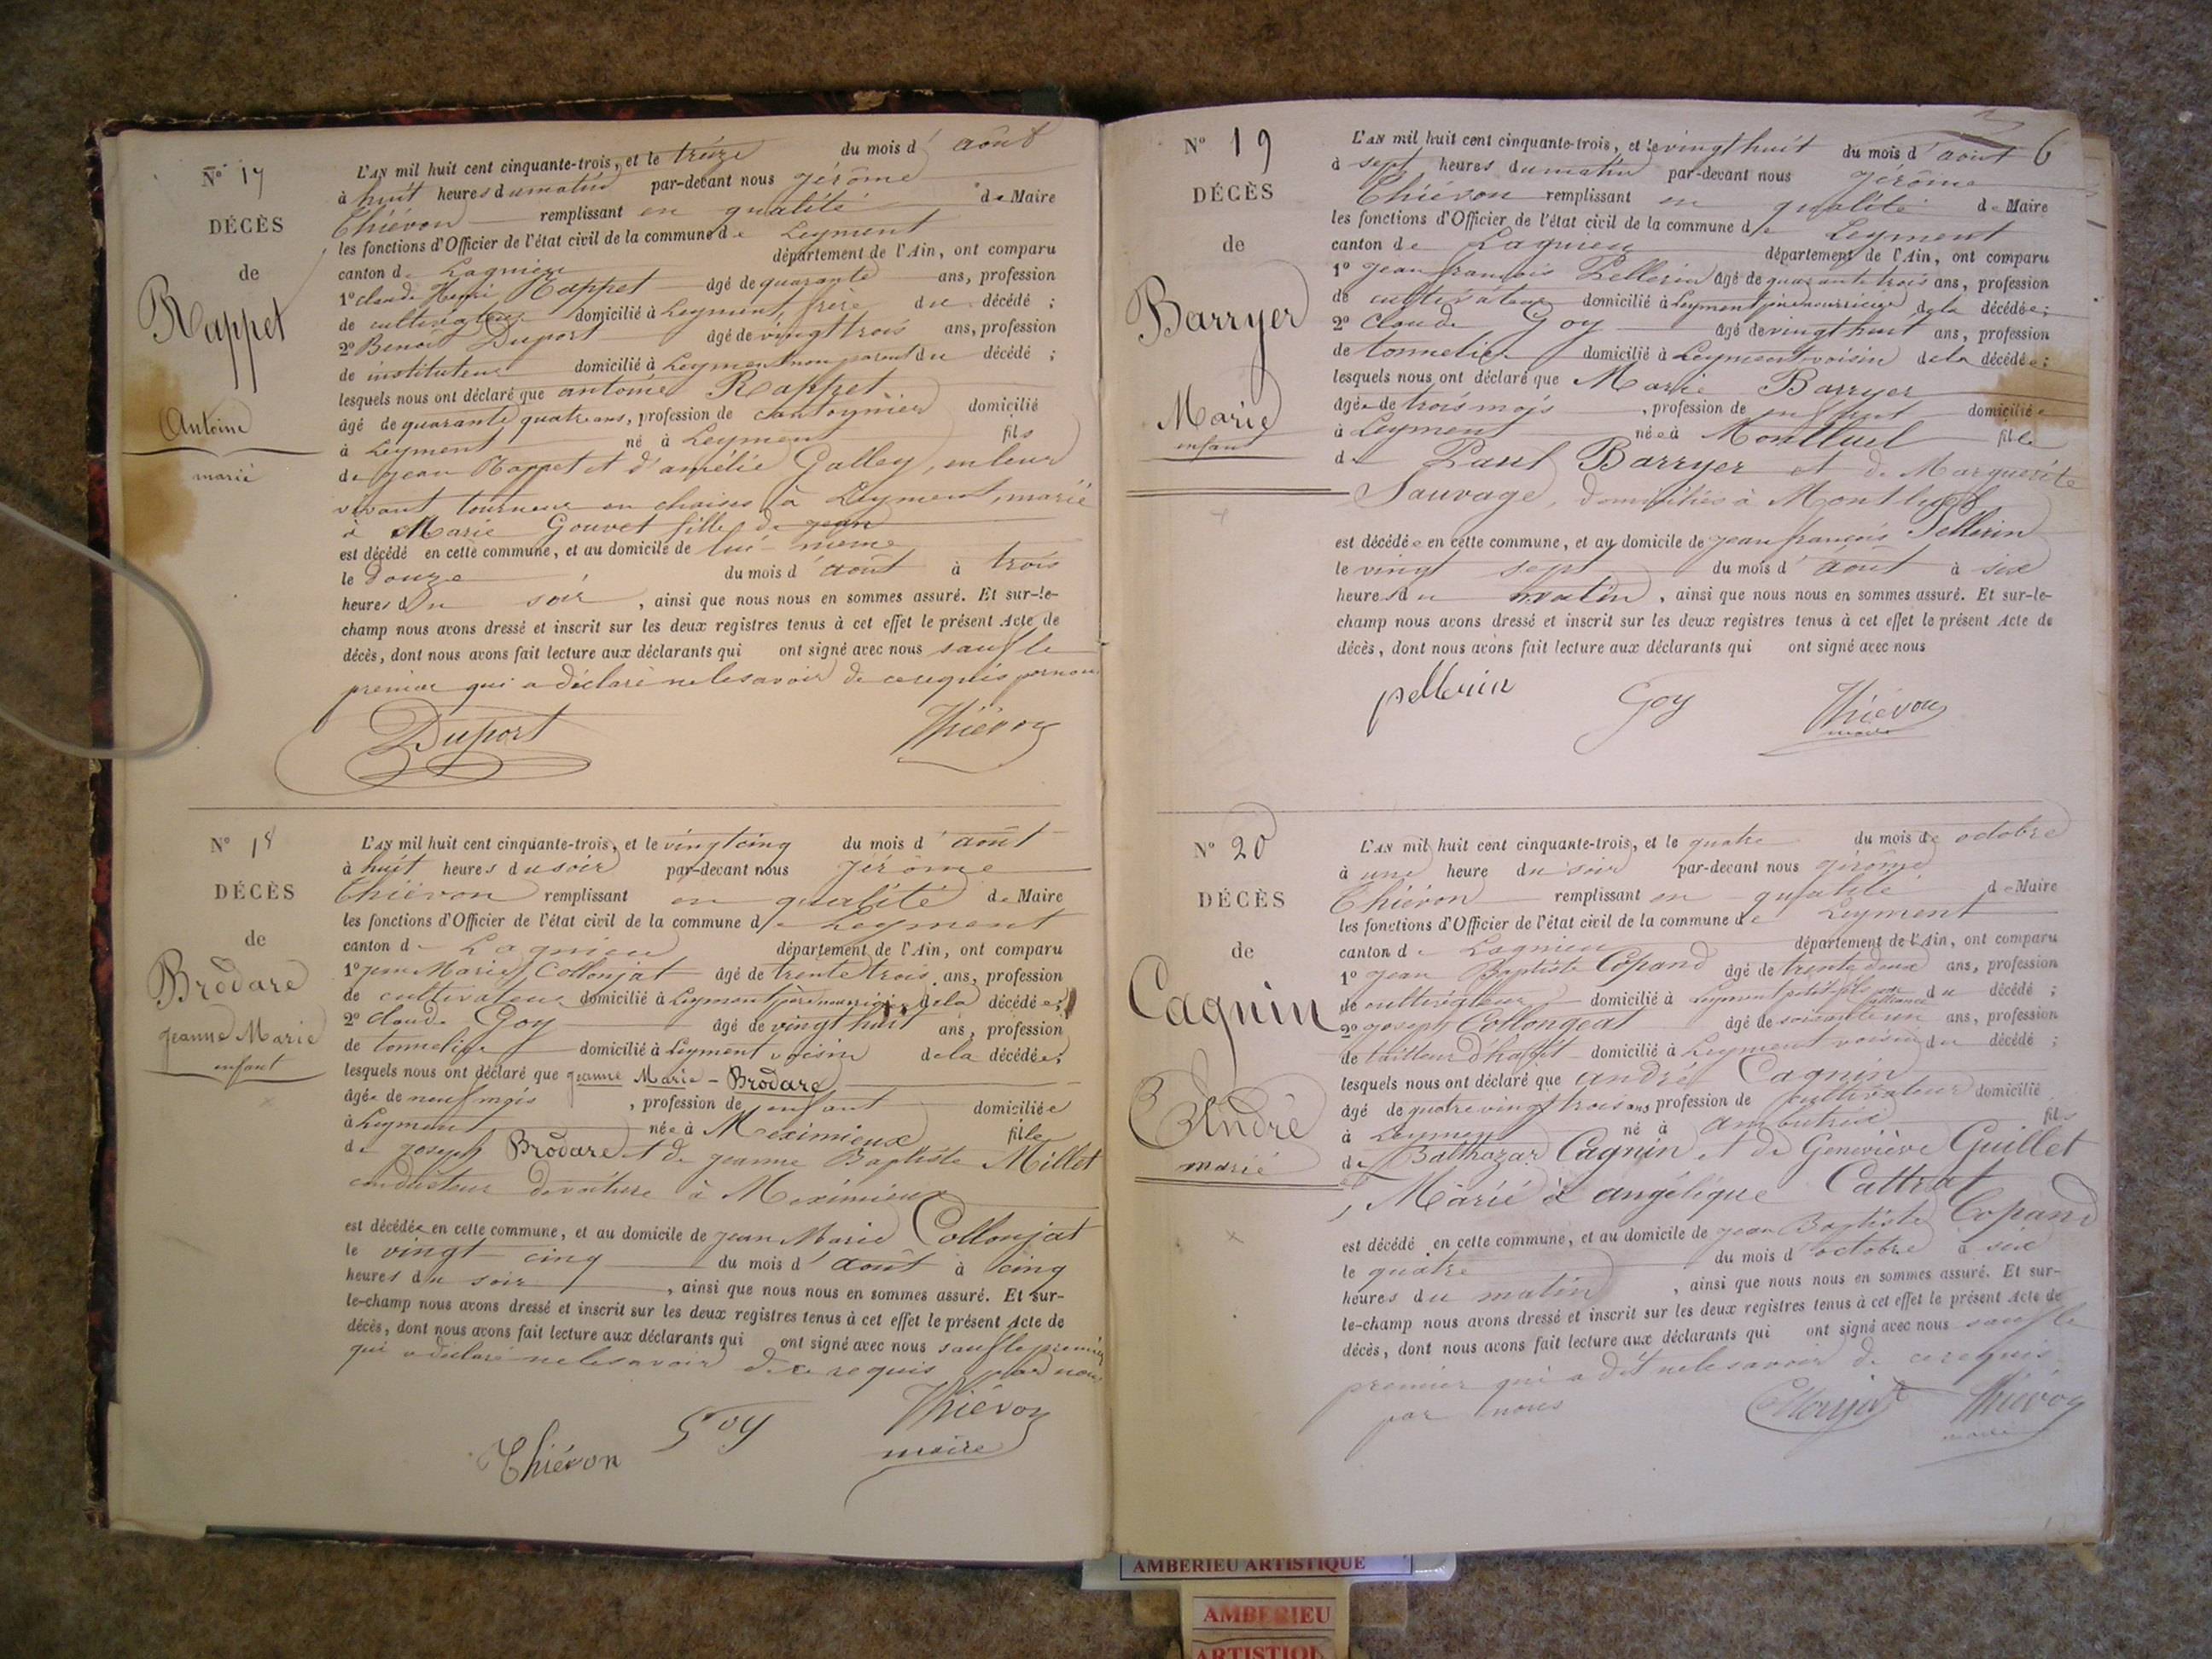 N° 17
DÉCÈS
de
Rappet
Antoine
marié
L'AN mil huit cent cinquante-trois, et le treize du mois d'août
à huit heures du matin par-devant nous jérôme
Thiévon remplissant en qualité de Maire
les fonctions d'Officier de l'état civil de la commune de Leyment
canton de Lagnieu département de l'Ain, ont comparu
1° claude Henri Rappet âgé de quarante ans, profession
de cultivateur domicilié à Leyment, frère du décédé ;
2° Benoit Duport âgé de vingt trois ans, profession
de instituteur domicilié à Leyment non parent du décédé ;
lesquels nous ont déclaré que antoine Rappet
âgé de quarante quatre ans, profession de cantonnier domicilié
à Leyment né à Leyment fils
de jean Rappet et d'amélie Galley, en leur
vivant tourneur en chaises à Leyment, marié
à Marie Gouvet fille de jean
est décédé en cette commune, et au domicile de lui-même
le douze du mois d'août à trois
heures du soir, ainsi que nous nous en sommes assuré. Et sur-le-
champ nous avons dressé et inscrit sur les deux registres tenus à cet effet le présent Acte de
décès, dont nous avons fait lecture aux déclarants qui ont signé avec nous sauf le
premier qui a déclaré ne le savoir de ce requis par nous
Duport Thiévon
N° 18
DÉCÈS
de
Brodare
jeanne Marie
enfant
L'AN mil huit cent cinquante-trois, et le vingt cinq du mois d'août
à huit heures du soir par-devant nous jérôme
Thiévon remplissant en qualité de Maire
les fonctions d'Officier de l'état civil de la commune de Leyment
canton de Lagnieu département de l'Ain, ont comparu
1° jean Marie Collonjat âgé de trente trois ans, profession
de cultivateur domicilié à Leyment père nourricier de la décédée ;
2° claude Goy âgé de vingt huit ans, profession
de tonnelier domicilié à Leyment voisin de la décédée ;
lesquels nous ont déclaré que jeanne Marie - Brodare
âgée de neuf mois, profession de enfant domiciliée
à Leyment née à Meximieux fille
de joseph Brodare et de jeanne Baptiste Millet
conducteur de voiture à Meximieux
est décédée en cette commune, et au domicile de jean Marie Collonjat
le vingt cinq du mois d'août à cinq
heures du soir, ainsi que nous nous en sommes assuré. Et sur-
le-champ nous avons dressé et inscrit sur les deux registres tenus à cet effet le présent Acte de
décès, dont nous avons fait lecture aux déclarants qui ont signé avec nous sauf le premier
qui a déclaré ne le savoir de ce requis par nous
Thiévon Goy Thiévon
maire
6
N° 19
DÉCÈS
de
Barryer
Marie
enfant
L'AN mil huit cent cinquante-trois, et le vingt huit du mois d'août
à sept heures du matin par-devant nous jérôme
Thiévon remplissant en qualité de Maire
les fonctions d'Officier de l'état civil de la commune de Leyment
canton de Lagnieu département de l'Ain, ont comparu
1° jean françois Pellerin âgé de quarante trois ans, profession
de cultivateur domicilié à Leyment père nourricier de la décédée ;
2° Claude Goy âgé de vingt huit ans, profession
de tonnelier domicilié à Leyment voisin de la décédée ;
lesquels nous ont déclaré que Marie Barryer
âgée de trois mois, profession de enfant domiciliée
à Leyment née à Montluel fille
de Paul Barryer et de Marguerite
Sauvage, domiciliés à Montluel
est décédée en cette commune, et au domicile de jean françois Pellerin
le vingt sept du mois d'août à six
heures du matin, ainsi que nous nous en sommes assuré. Et sur-le-
champ nous avons dressé et inscrit sur les deux registres tenus à cet effet le présent Acte de
décès, dont nous avons fait lecture aux déclarants qui ont signé avec nous
pellerin Goy Thiévon
maire
N° 20
DÉCÈS
de
Cagnin
André
marié
L'AN mil huit cent cinquante-trois, et le quatre du mois de octobre
à une heure du soir par-devant nous jérôme
Thiévon remplissant en qualité de Maire
les fonctions d'Officier de l'état civil de la commune de Leyment
canton de Lagnieu département de l'Ain, ont comparu
1° jean Baptiste Copand âgé de trente deux ans, profession
de cultivateur domicilié à Leyment petit fils par alliance du décédé ;
2° joseph Collongeat âgé de soixante un ans, profession
de tailleur d'habit domicilié à Leyment voisin du décédé ;
lesquels nous ont déclaré que andré Cagnin
âgé de quatre vingt trois ans profession de cultivateur domicilié
à Leyment né à ambutrix fils
de Balthazar Cagnin et de Geneviève Guillet
, Marié à angélique Cattrat
est décédé en cette commune, et au domicile de jean Baptiste Copand
le quatre du mois d'octobre à six
heures du matin, ainsi que nous nous en sommes assuré. Et sur-
le-champ nous avons dressé et inscrit sur les deux registres tenus à cet effet le présent Acte de
décès, dont nous avons fait lecture aux déclarants qui ont signé avec nous sauf le
premier qui a dit ne le savoir de ce requis
par nous Collonjat Thiévon
maire
AMBERIEU ARTISTIQUE
AMBERIEU
ARTISTIQ